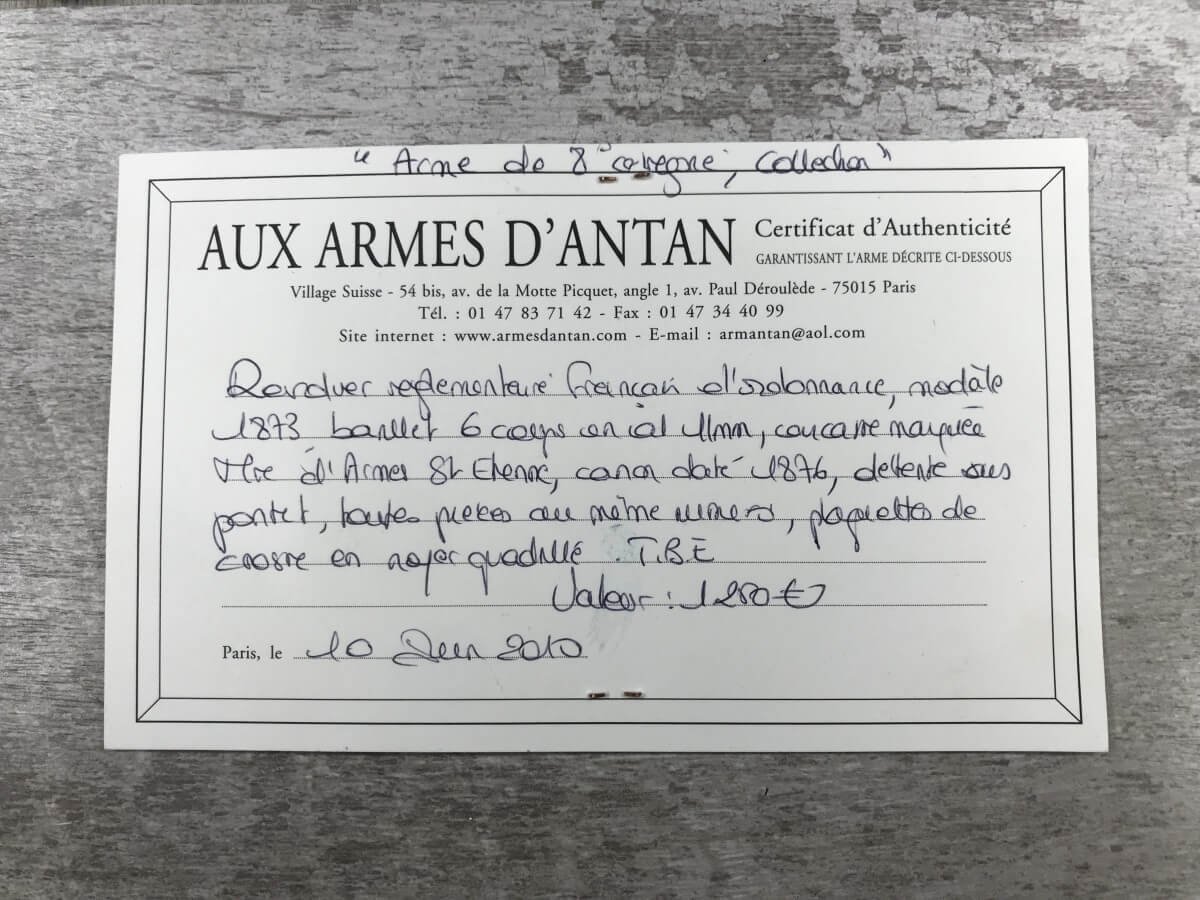 "Arme de 8° categorie, Collection"
AUX ARMES D'ANTAN
Certificat d'Authenticité
GARANTISSANT L'ARME DÉCRITE CI-DESSOUS
Village Suisse - 54 bis, av. de la Motte Picquet, angle 1, av. Paul Déroulède - 75015 Paris
Tél. : 01 47 83 71 42 - Fax : 01 47 34 40 99
Site internet : www.armesdantan.com - E-mail : armantan@aol.com
Revolver reglementaire Français d'ordonnance, modèle
1873 barillet 6 coups en cal 11mm, carcasse marquée
Mre d'Armes St Etienne, canon daté 1876, detente sous
pontet, toutes pieces au même numero, plaquettes de
crosse en noyer quadrillé. T.B.E
Valeur : 1250€
Paris, le 10 Juin 2010